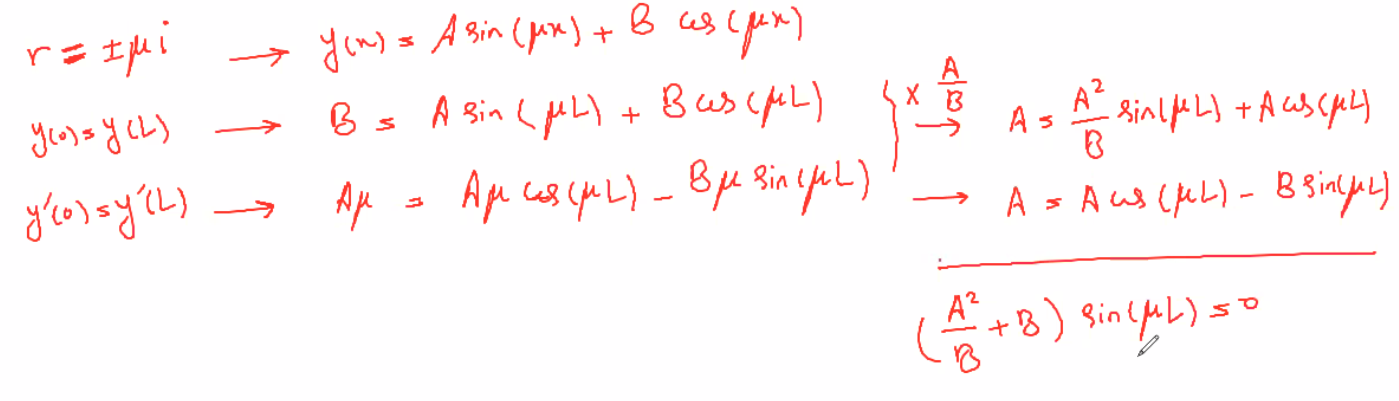 r = ±μi → y(x) = A sin(μx) + B cos(μx)
y(0) = y(L) → B = A sin(μL) + B cos(μL) } × A/B → A = A²/B sin(μL) + A cos(μL)
y'(0) = y'(L) → Aμ = Aμ cos(μL) - Bμ sin(μL) → A = A cos(μL) - B sin(μL)
(A²/B + B) sin(μL) = 0